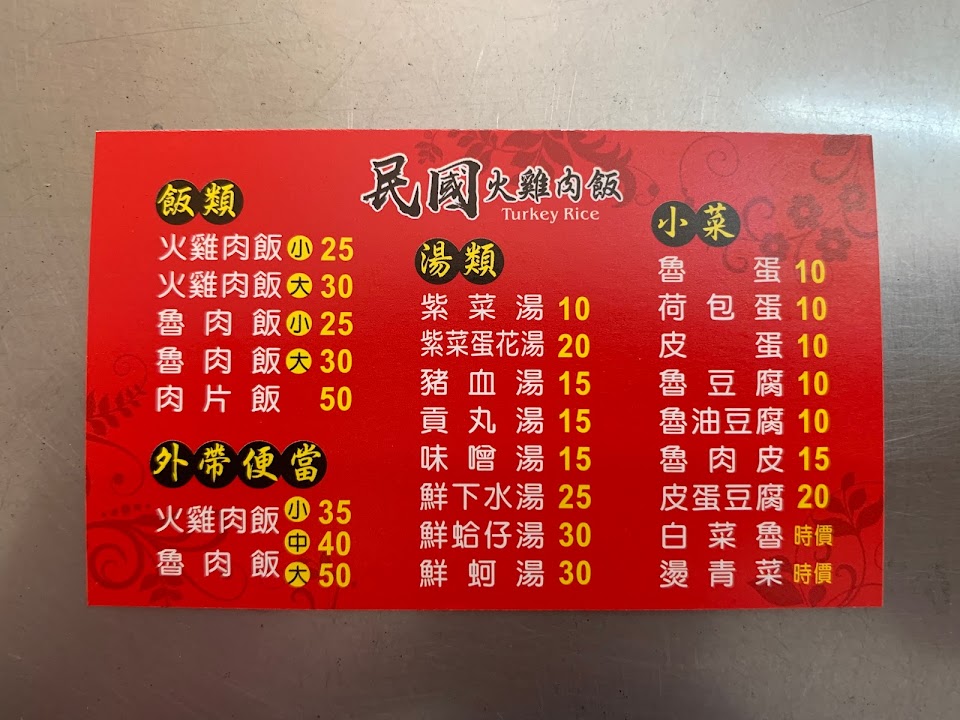 民國火雞肉飯
Turkey Rice
飯類
火雞肉飯 小 25
火雞肉飯 大 30
魯肉飯 小 25
魯肉飯 大 30
肉片飯 50
外帶便當
火雞肉飯 小 35
中 40
魯肉飯 大 50
湯類
紫菜湯 10
紫菜蛋花湯 20
豬血湯 15
貢丸湯 15
味噌湯 15
鮮下水湯 25
鮮蛤仔湯 30
鮮蚵湯 30
小菜
魯蛋 10
荷包蛋 10
皮蛋 10
魯豆腐 10
魯油豆腐 10
魯肉皮 15
皮蛋豆腐 20
白菜魯 時價
燙青菜 時價